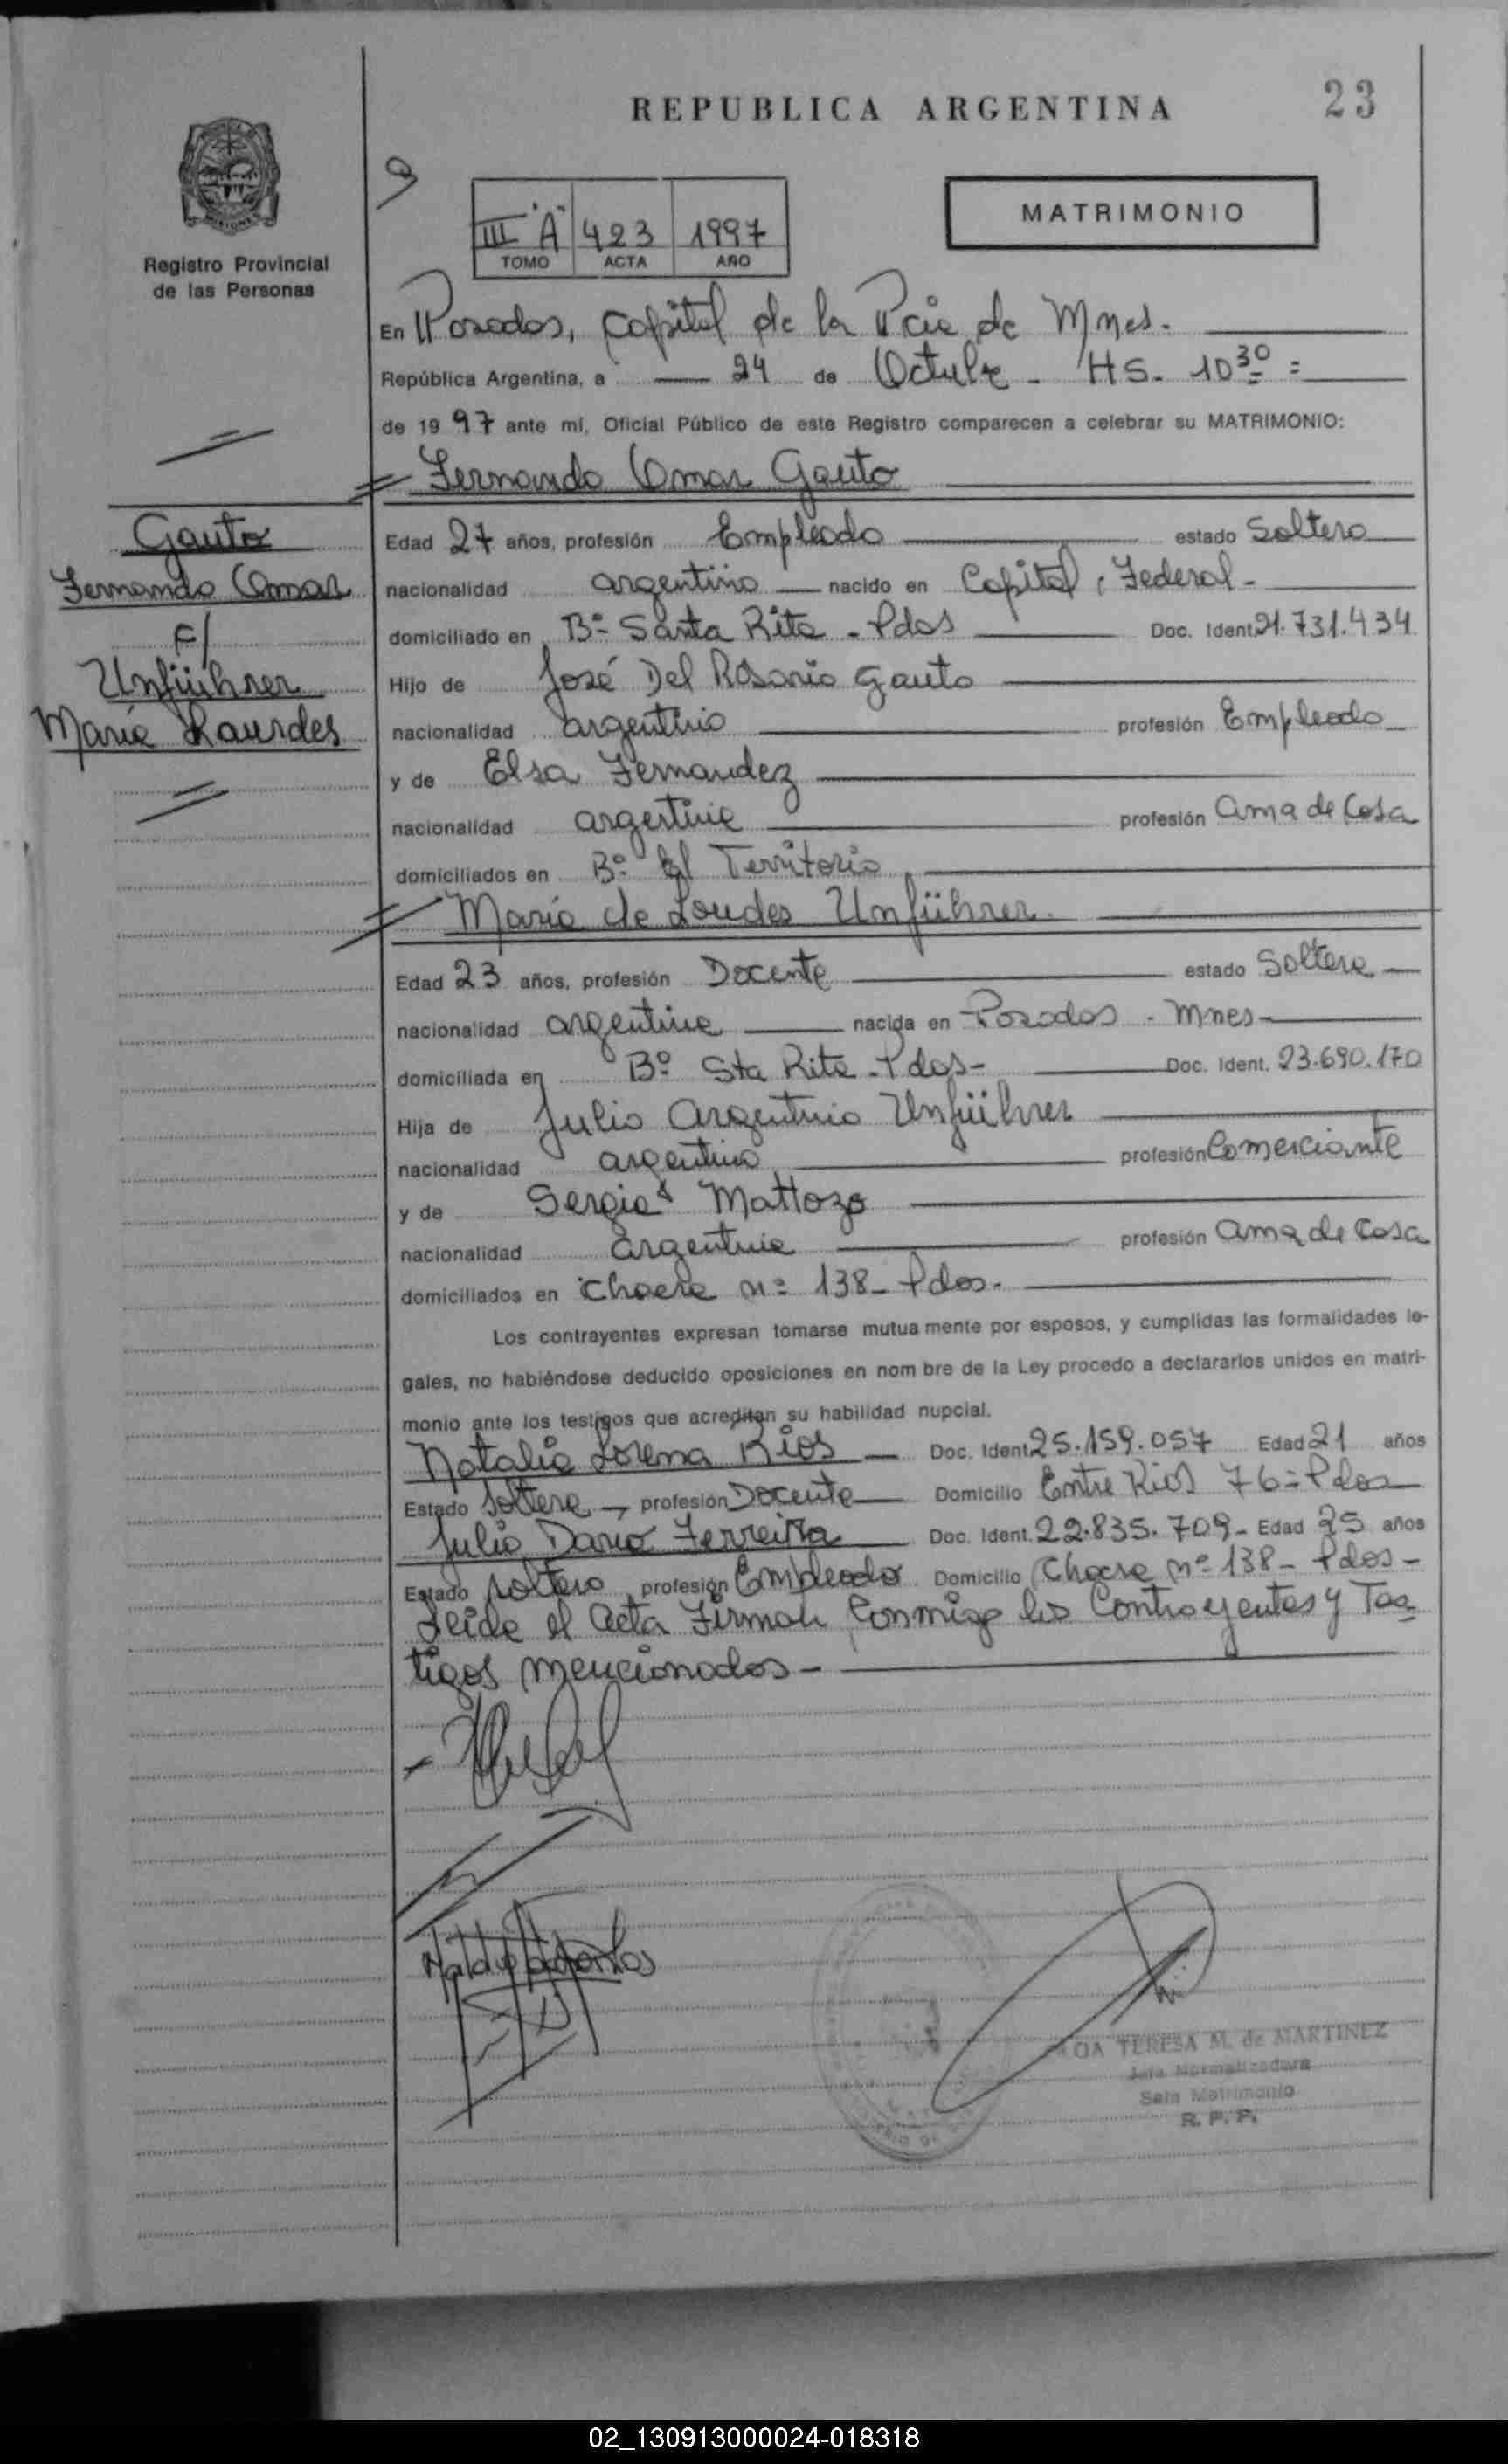 REPUBLICA ARGENTINA
23
Registro Provincial
de las Personas
III "A" 423 1997
TOMO ACTA AÑO
MATRIMONIO
En Posadas, Capital de la Pcia de Mnes.
República Argentina, a 24 de Octubre - HS. 10 30 =
de 19 97 ante mi, Oficial Público de este Registro comparecen a celebrar su MATRIMONIO:
Fernando Omar Gauto
Gauto
Fernando Omar
c/
Unfüihrer
Maria Lourdes
Edad 27 años, profesión Empleado estado Soltero
nacionalidad argentino nacido en Capital, Federal -
domiciliado en Bº Santa Rita - Pdas Doc. Ident. 21.731.434
Hijo de José Del Rosario Gauto
nacionalidad argentino profesión Empleado
y de Elsa Fernandez
nacionalidad argentina profesión ama de Casa
domiciliados en Bº El Territorio
María de Loudes Unfüihrer.
Edad 23 años, profesión Docente estado Soltera
nacionalidad argentina nacida en Posadas - Mnes -
domiciliada en Bº Sta Rita - Pdas - Doc. Ident. 23.690.170
Hija de Julio Argentino Unfüihrer
nacionalidad argentino profesión Comerciante
y de Mattozo
nacionalidad argentina profesión ama de Casa
domiciliados en Chacra nº 138 - Pdas.
Los contrayentes expresan tomarse mutua mente por esposos, y cumplidas las formalidades le-
gales, no habiéndose deducido oposiciones en nom bre de la Ley procedo a declararlos unidos en matri-
monio ante los testigos que acreditan su habilidad nupcial.
Natalia Lorena Rios Doc. Ident. 25.159.057 Edad 21 años
Estado Soltera profesión Docente Domicilio Entre Rios 76 = Pdas
Julio Dario Ferreira Doc. Ident. 22.835.709 - Edad 25 años
Estado soltero profesión Empleado Domicilio Chacra nº 138 - Pdas -
Leida el acta Firman Conmigo los Contrayentes y Tes
tigos mencionados -
TERESA M. de MARTINEZ
Jefa Normalizadora
Sala Matrimonio
R. P. P.
02_130913000024-018318